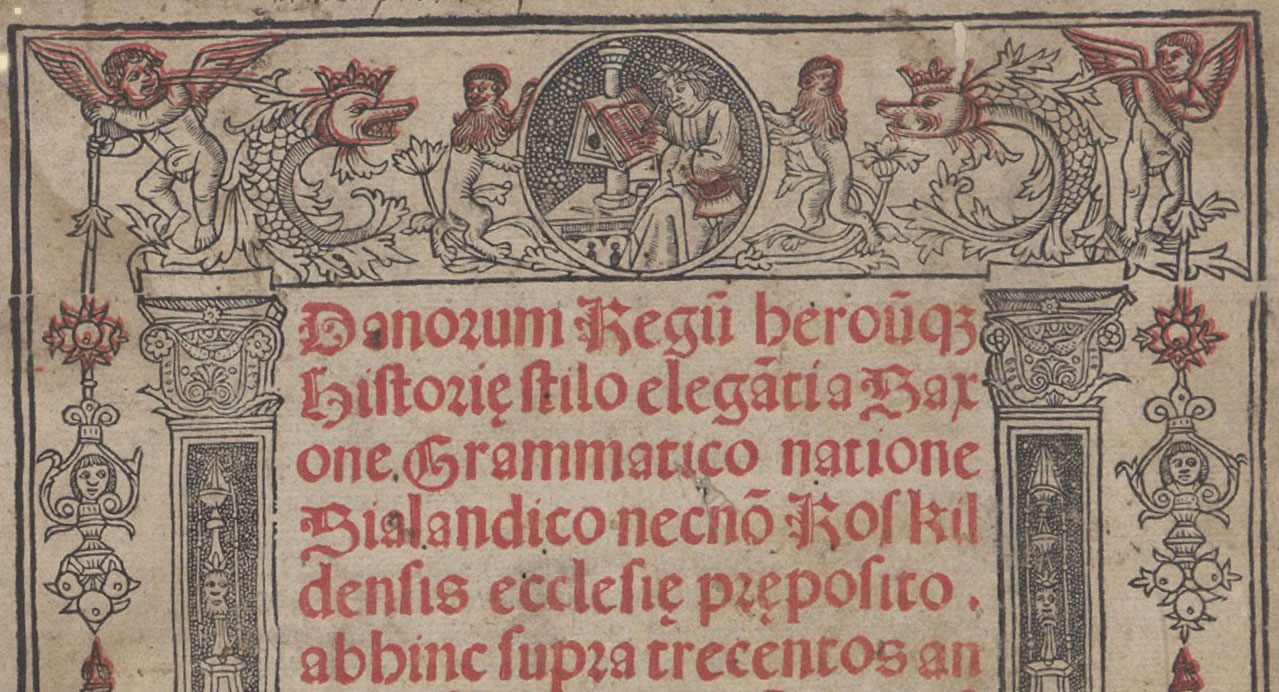 Danorum Regū heroūqꝫ
Historię stilo elegāti a Sax
one Grammatico natione
Sialandico necnō Roskil
densis ecclesię pręposito.
abhinc supra trecentos an